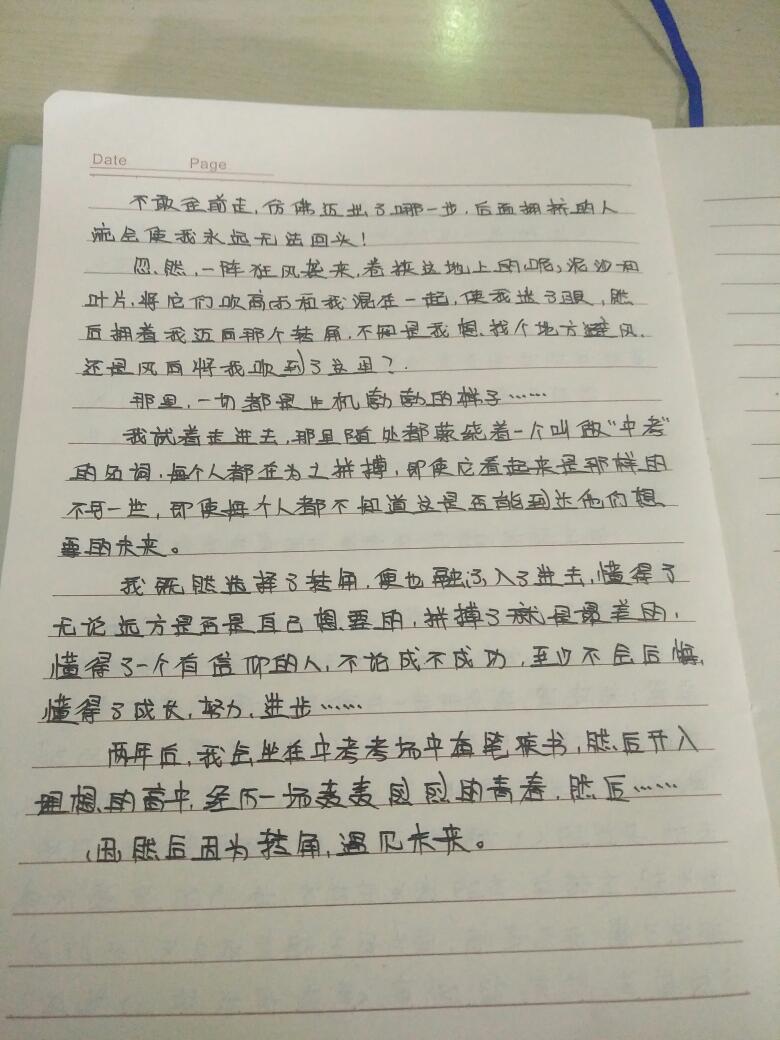 Date Page
不敢往前走,仿佛迈出了哪一步,后面拥挤的人
流会使我永远无法回头!
忽然,一阵狂风袭来,卷挟这地上的呢,泥沙和
叶片,将它们吹高而和我混在一起,使我迷了眼,然
后拥着我迈向那个转角,不知是我想找个地方避风,
还是风向将我吹到了这里?
那里,一切都是生机勃勃的样子……
我试着走进去,那里随处都萦绕着一个叫做“中考”
的名词,每个人都在为之拼搏,即使它看起来是那样的
不可一些,即使每个人都不知道这是否能到达他们想
要的未来。
我既然选择了转角,便也融入了进去,懂得了
无论远方是否是自己想要的,拼搏了就是最美的,
懂得了一个有信仰的人,不论成不成功,至少不会后悔,
懂得了成长,努力,进步……
两年后,我会坐在中考考场中奋笔疾书,然后升入
理想的高中,经历一场轰轰烈烈的青春,然后……
然后因为转角,遇见未来。